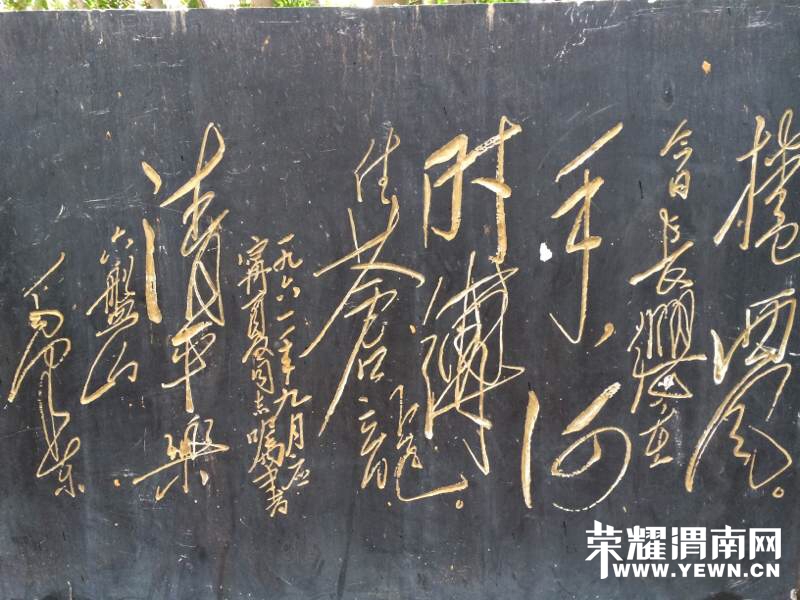 捲西风。
今日长缨在
手,何
时缚
住苍龙。
一九六一年九月应
宁夏同志嘱书
清平乐
六盘山
毛泽东
荣耀渭南网
WWW.YEWN.CN